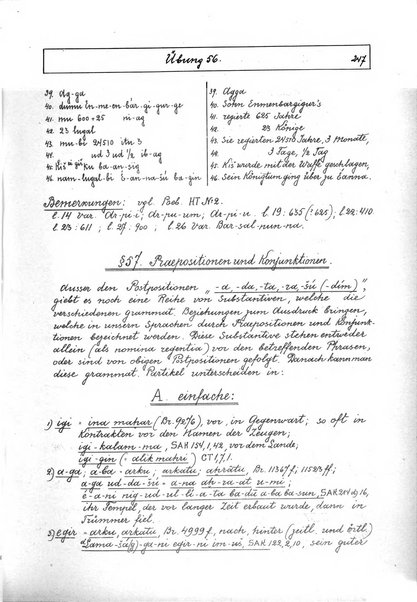 Übung 56. 247
39. Ag-ga
40. dumu En-me-en-bár-gi-gur-ge
41. mu 600 + 25 ni-ag
42. 23 lugal
43. mu-bi 24510 itu 3
44. ud 3 ud ½ ib-ag
45. Kiš ku ba-an-sig
46. nam-lugal-bi é-an-na-šú ba-gin
39. Agga
40. Sohn Enmenbargigur's
41. regierte 625 Jahre
42. 23 Könige
43. Sie regierten 24510 Jahre, 3 Monate,
44. 3 Tage, ½ Tag
45. Kiš wurde mit der Waffe geschlagen,
46. Sein Königtum ging über zu Eanna.
Bemerkungen: vgl. Bab. HT No 2.
l. 14 Var. Ar-pi-i; Ar-pu-um; Ar-pi-u. l. 19: 635 (?625), l 22: 410
l 23: 611; l. 27: 900; l 26 Var. Bar-sal-nun-na.
§ 57. Praepositionen und Konjunktionen.
Ausser den Postpositionen „-a, -da, -ta, -ra, -šú (-dim)",
giebt es noch eine Reihe von Substantiven, welche die
verschiedenen grammat. Beziehungen zum Ausdruck bringen,
welche in unsern Sprachen durch Praepositionen und Konjunk-
tionen bezeichnet werden. Diese Substantive stehen entweder
allein (als nomina regentia) vor den betreffenden Phrasen,
oder sind von obigen Postpositionen gefolgt. Danach kann man
diese grammat. Partikel unterscheiden in:
A. einfache:
1) igi = ina mahar (Br. 9276), vor, in Gegenwart; so oft in
Kontrakten vor den Namen der Zeugen;
igi-kalam-ma, SAK 154, 1, 42, vor dem Lande;
igi-gin (= alik mahri) CT 1, 7, 1.
2) a-ga; a-ba = arku; arkatu; ahrâtu; Br. 11367 f; 11583 ff.
a-ga ud-da-šú = a-na ah-ra-at u-mi;
é-a-ni nig-ud-ul-li-a-ta ba-du a-ba ba-sun, SAK 214 d) 16,
ihr Tempel, der vor langer Zeit erbaut wurde, dann in
Trümmer fiel.
3) egir = arku, arkatu, Br. 4999 f, nach, hinter (zeitl. und örtl.)
-ga-ni egir-ni im-uš, SAK 122, 2, 10, sein guter